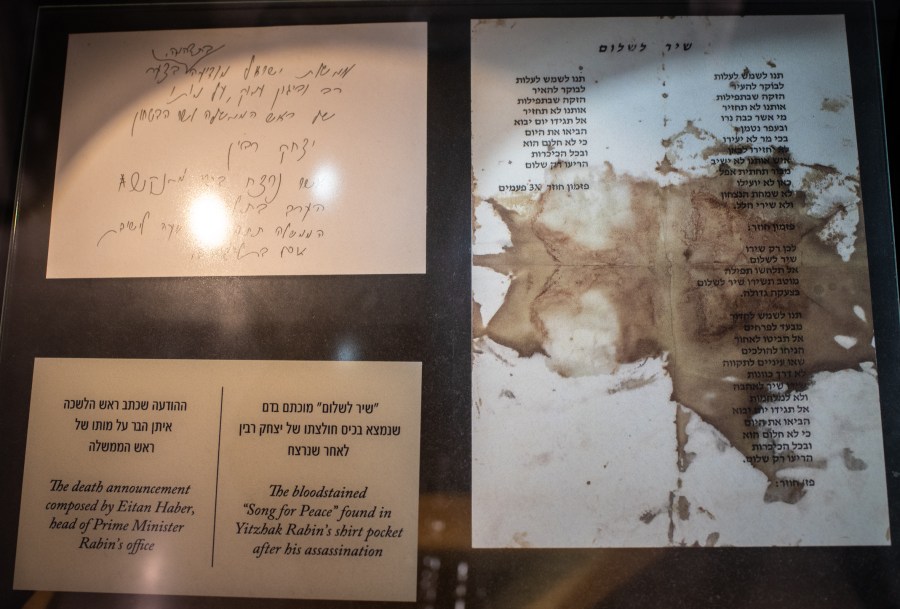 בתדהמה,
ממשלת ישראל מודיעה בצער
רב וביגון עמוק, על מותו
של ראש הממשלה ושר הבטחון
יצחק רבין
נרצח בידי מתנקש
הערב
הממשלה שעה לישיבת
שיר לשלום
תנו לשמש לעלות
לבוקר להאיר
הזקה שבתפילות
אותנו לא תחזיר
מי אשר כבה נרו
ובעפר נטמן
בכי מר לא יעירו
לא יחזירו לכאן
איש אותנו לא ישיב
מבור תחתית אפל
כאן לא יועילו
לא שמחת הנצחון
ולא שירי הלל.
פזמון חוזר:
לכן רק שירו
שיר לשלום
אל תלחשו תפילה
מוטב תשירו שיר לשלום
בצעקה גדולה.
תנו לשמש לחדור
מבעד לפרחים
אל תביטו לאחור
הניחו להולכים
שאו עיניים לתקווה
לא דרך כוונות
שירו שיר לאהבה
ולא למלחמות
אל תגידו יום יבוא
הביאו את היום
כי לא חלום הוא
ובכל הכיכרות
הריעו רק שלום.
פזמון חוזר:
תנו לשמש לעלות
לבוקר להאיר
הזקה שבתפילות
אותנו לא תחזיר
אל תגידו יום יבוא
הביאו את היום
כי לא חלום הוא
ובכל הכיכרות
הריעו רק שלום
פזמון חוזר 3X פעמים
"שיר לשלום" מוכתם בדם
שנמצא בכיס חולצתו של יצחק רבין
לאחר שנרצח
The bloodstained
"Song for Peace" found in
Yitzhak Rabin's shirt pocket
after his assassination
ההודעה שכתב ראש הלשכה
איתן הבר על מותו של
ראש הממשלה
The death announcement
composed by Eitan Haber,
head of Prime Minister
Rabin's office